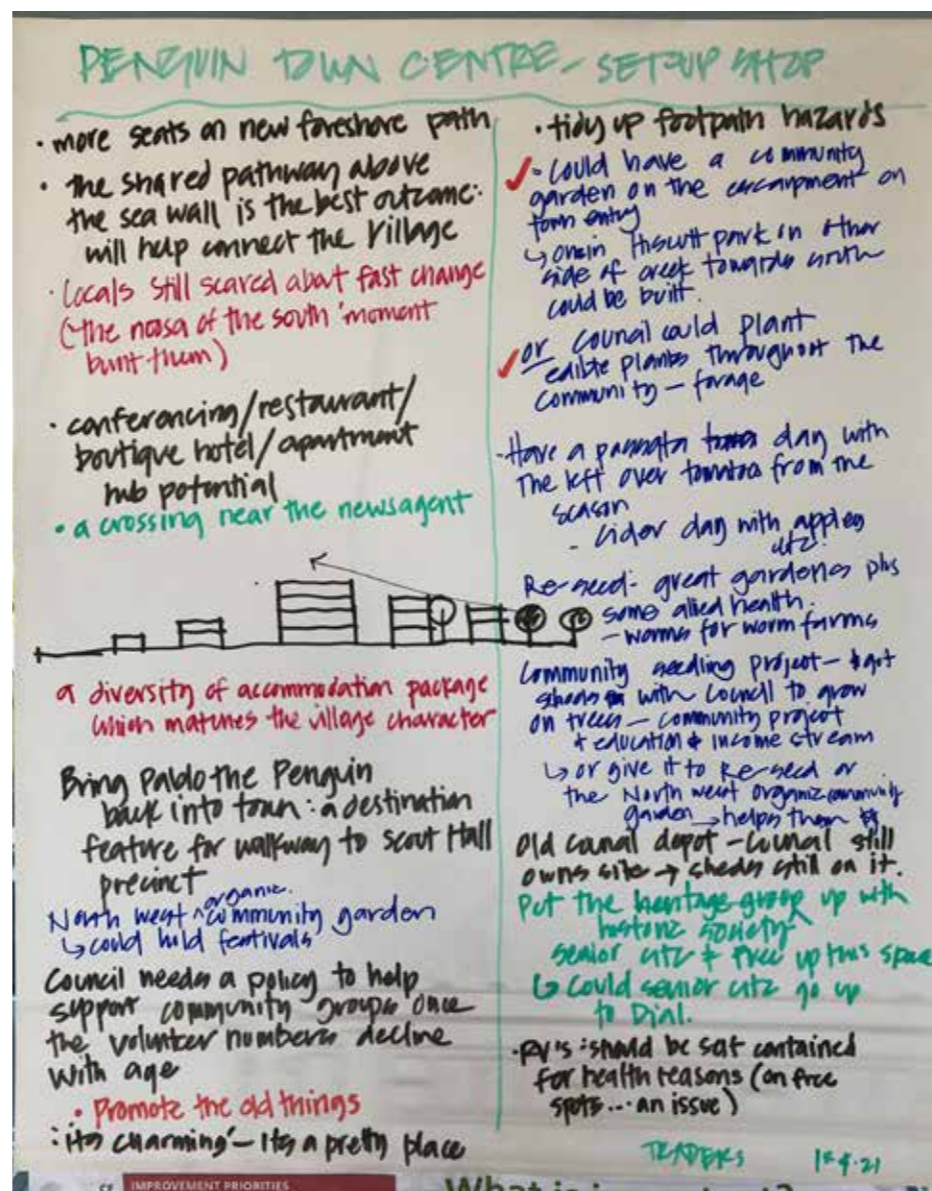 PENGUIN TOWN CENTRE - SETUP SHOP
· more seats on new foreshore path
· the shared pathway above
the sea wall is the best outcome:
will help connect the village
· Locals still scared about fast change
('the noosa of the south' moment
burnt them)
· conferencing/restaurant/
boutique hotel/apartment
hub potential
· a crossing near the newsagent
a diversity of accommodation package
which matches the village character
Bring Pablo the Penguin
back into town: a destination
feature for walkway to scout Hall
precinct
North west ^organic community garden
↳ could hold festivals
Council needs a policy to help
support community groups once
the volunteer numbers decline
with age
· Promote the old things
: 'its charming' - Its a pretty place
· tidy up footpath hazards
✓ - Could have a community
garden on the escarpment on
town entry
↳ park on other
side of creek towards south
could be built.
✓ or Council could plant
edible plants throughout the
community - forage
- Have a passata day with
the left over tomatoes from the
season
- Cider day with apples
etc.
Re-seed - great gardens plus
some allied health
- worms for worm farms
Community seedling project -
sheds with Council to grow
on trees - community project
+ education + income stream
↳ or give it to Re-seed or
the North west organic community
garden → helps them
Old Council depot - Council still
owns site → sheds still on it.
Put the heritage group up with
historic society
senior citz + free up this space
↳ Could senior citz go up
to Dial.
· RV's: should be self contained
for health reasons (on free
spots... an issue)
TRADERS
IMPROVEMENT PRIORITIES
What is important?